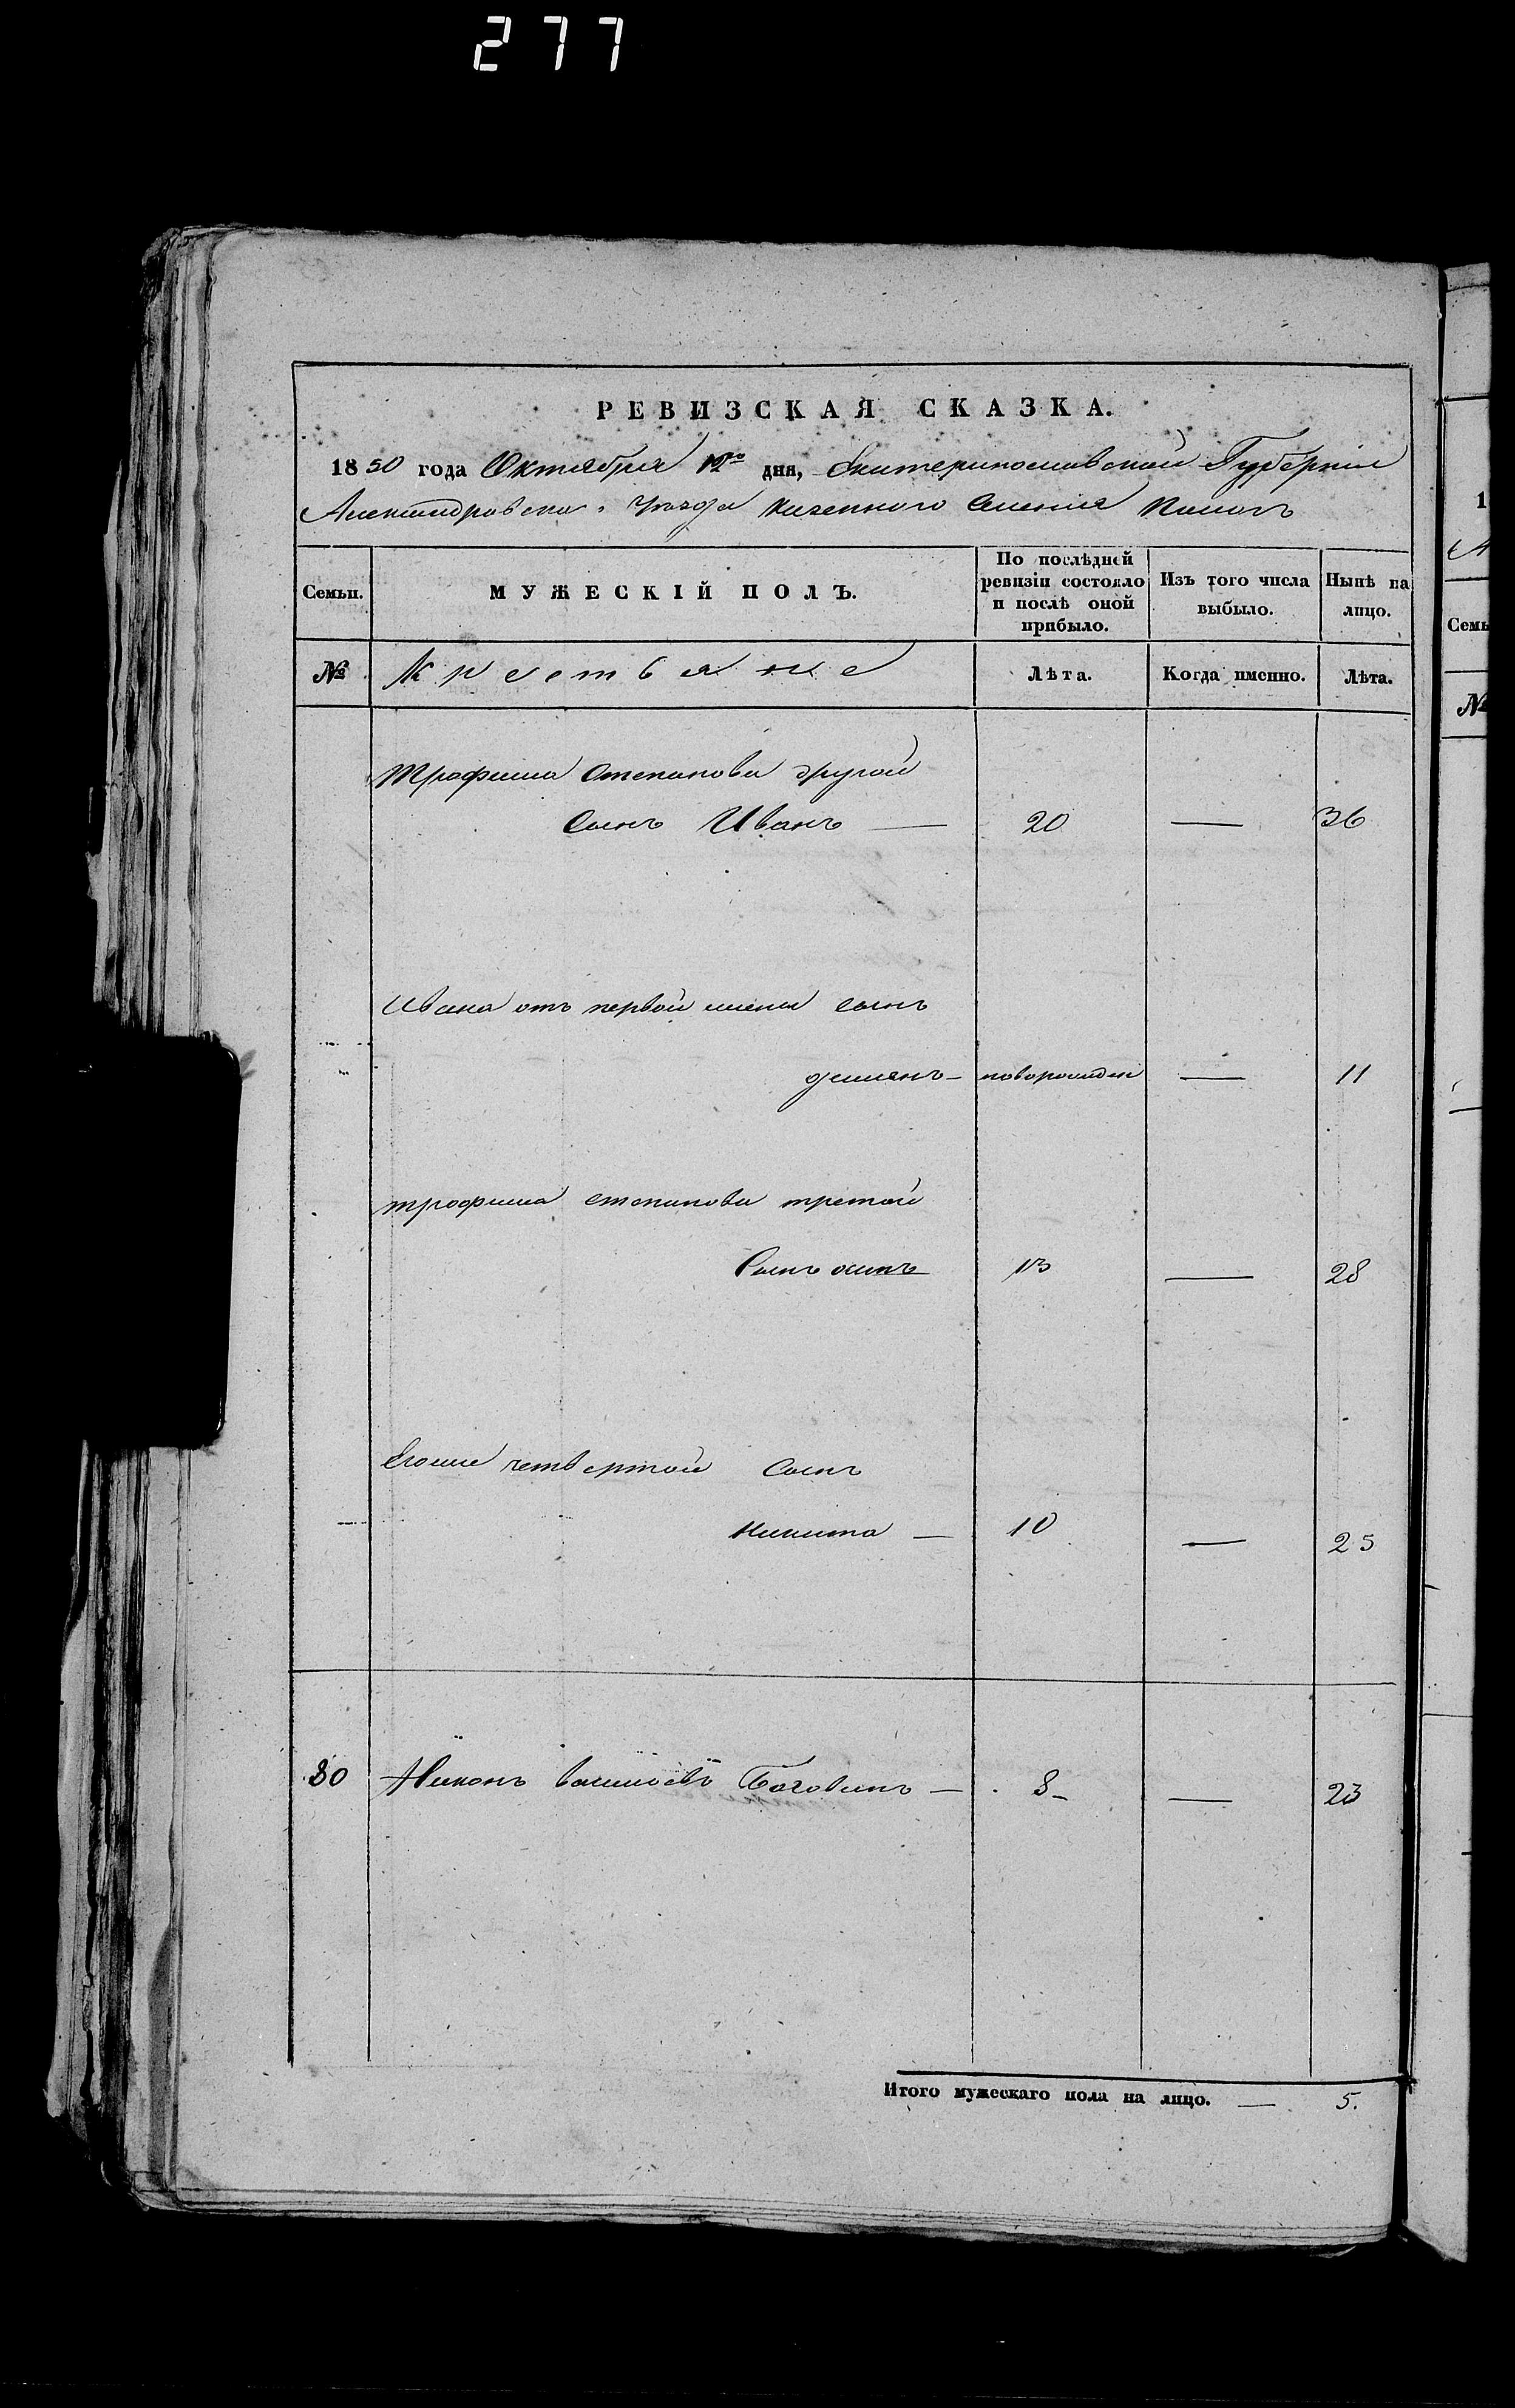 277
РЕВИЗСКАЯ СКАЗКА.
1850 года Октября 12го дня, Екатеринославской Губерніи
Александровскаго уезда Казенного Селенія
Семьи. МУЖЕСКІЙ ПОЛЪ. По послѣдней ревизіи состояло и послѣ оной прибыло. Изъ того числа выбыло. Нынѣ на лицо.
№ Крестьяне Лѣта. Когда именно. Лѣта.
Трофима Степанова другой
Сынъ Иванъ — 20 — 36
Ивана отъ первой жены сынъ
демянъ — новорожден — 11
трофима степанова третой
Сынъ осипъ 13 — 28
Егоже четвертой Сынъ
Никита — 10 — 25
80 Никонъ — 8 — 23
Итого мужескаго пола на лицо. — 5.
1
Семь
№